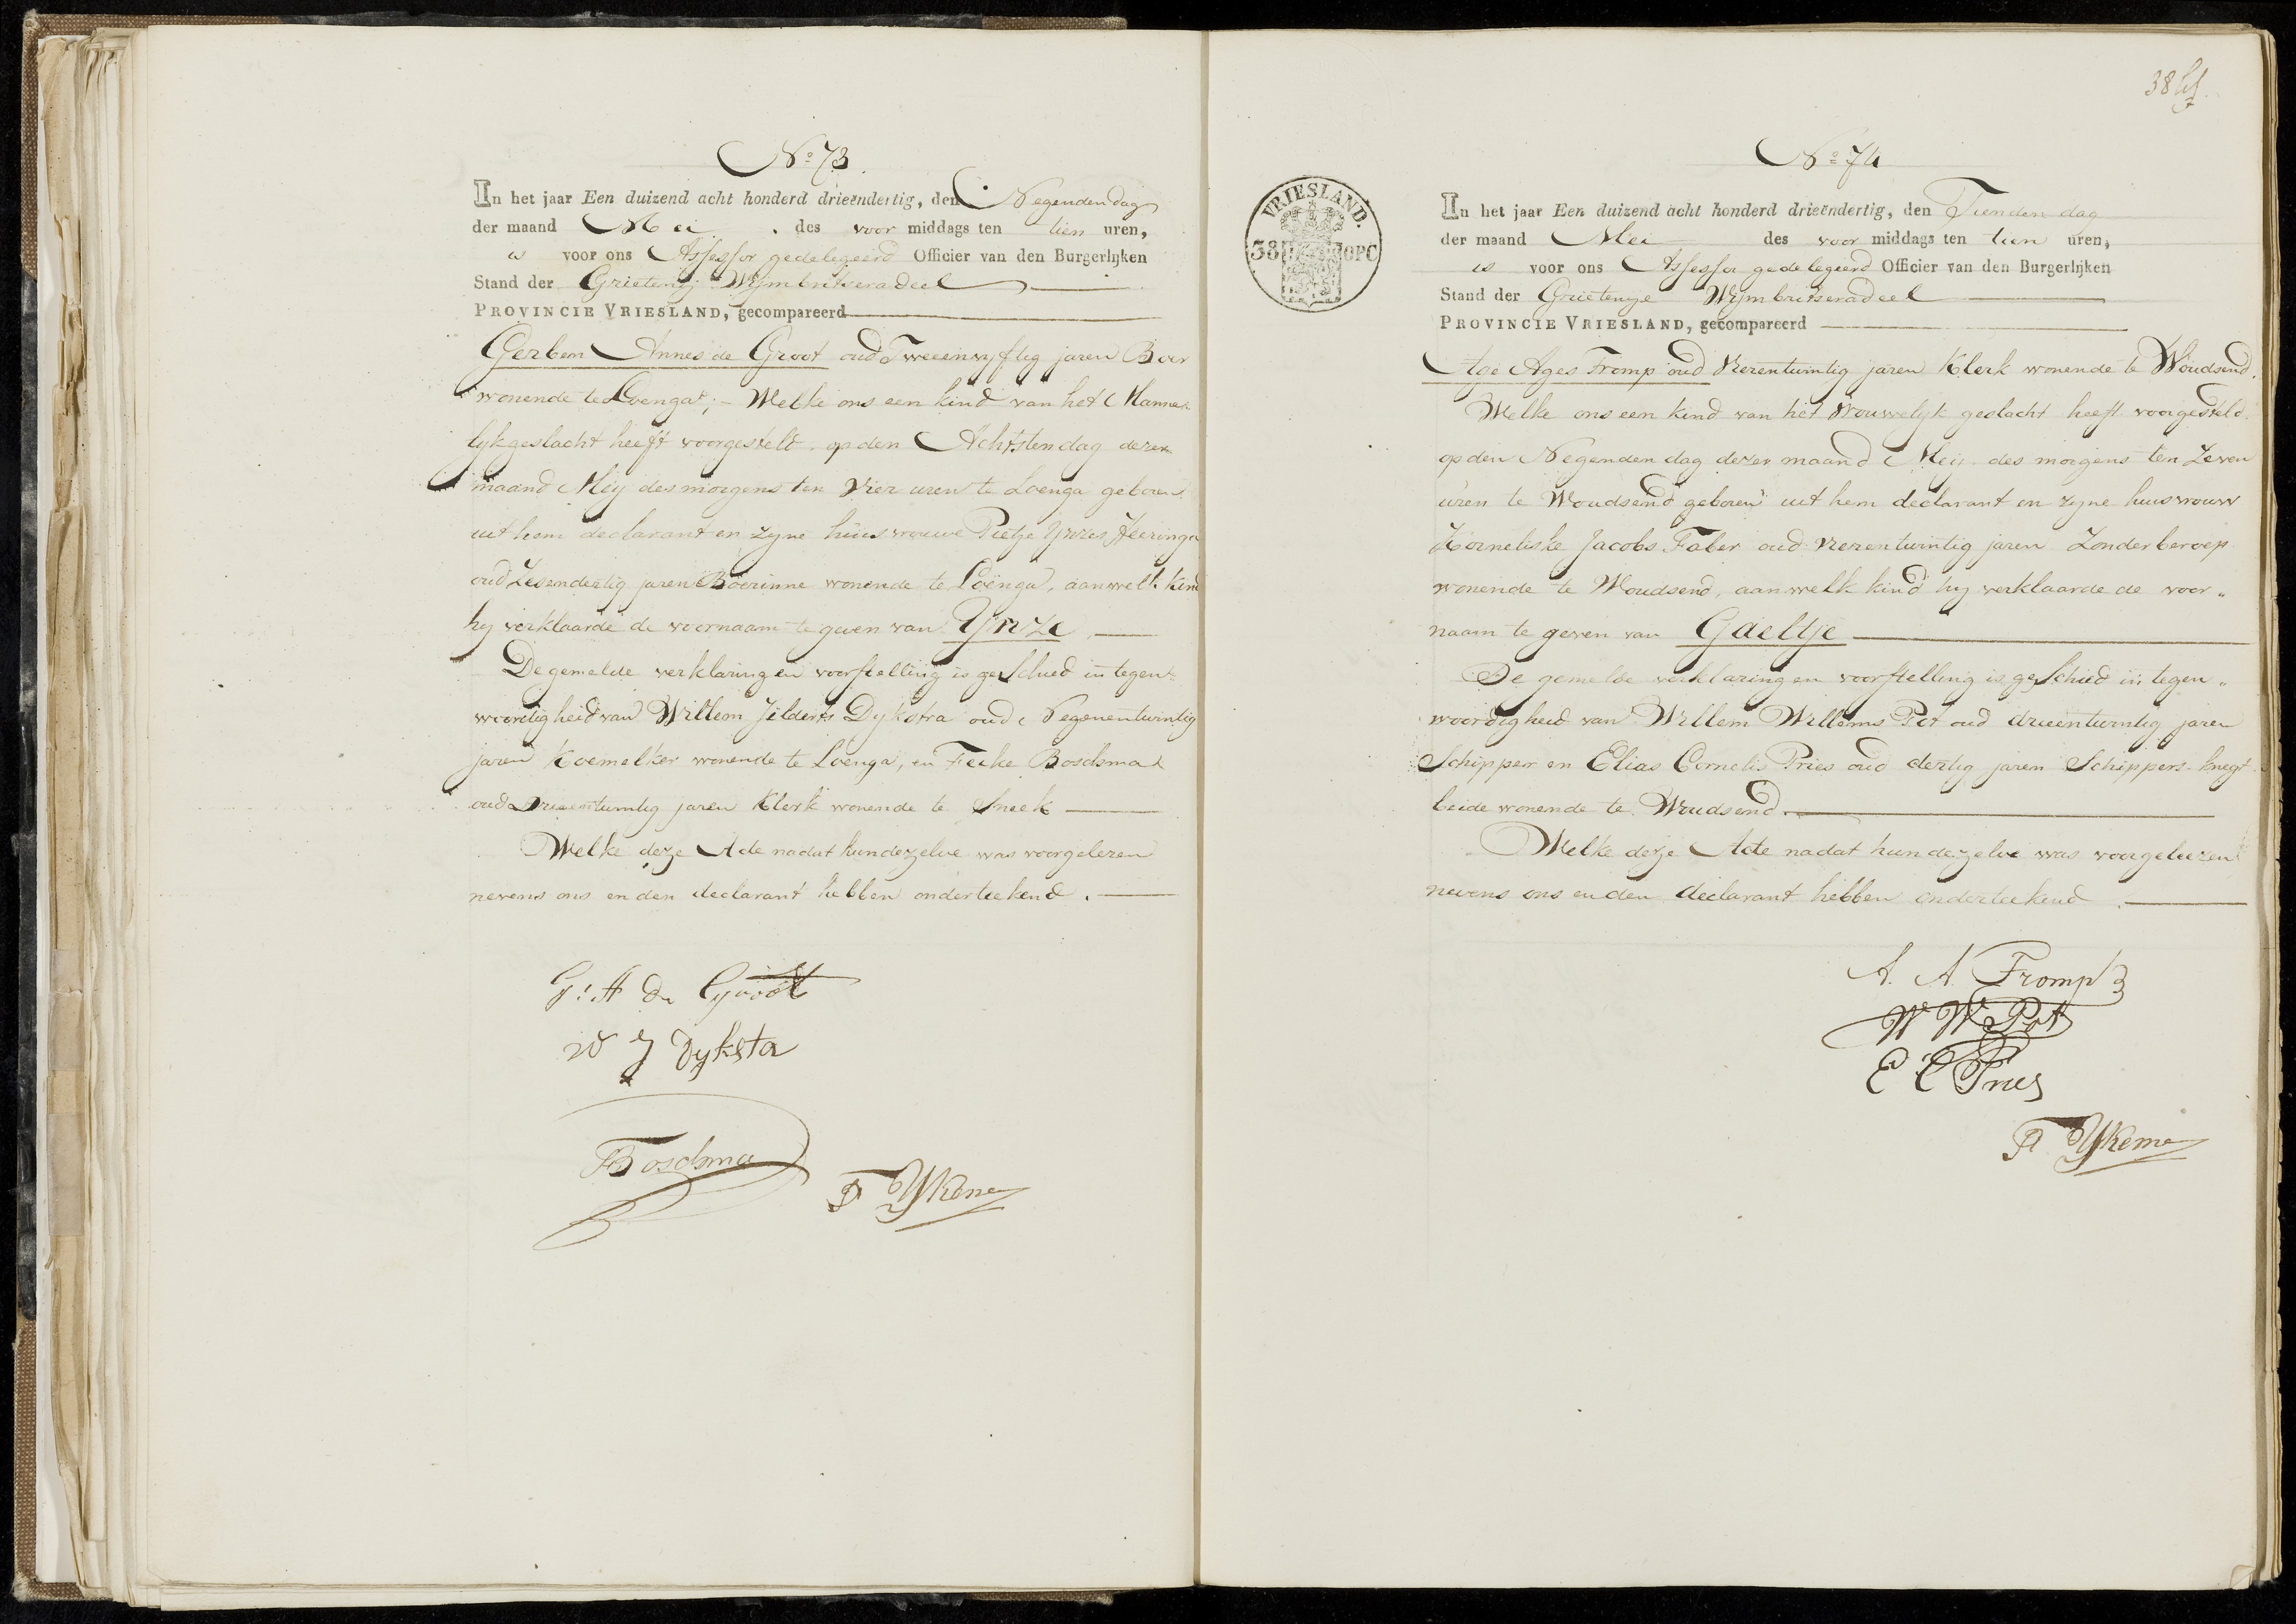 No. 73.
In het jaar Een duizend acht honderd drieëndertig, den Negenden dag
der maand Mei des voor middags ten tien uren,
is voor ons Assessor gedelegeerd Officier van den Burgerlijken
Stand der Grietenij Wijmbritseradeel
PROVINCIE VRIESLAND, gecompareerd
Gerben Annes de Groot oud Tweeenvyftig jaren Boer
wonende te Loenga; - Welke ons een kind van het Manne-
lyk geslacht heeft voorgesteld op den Achtsten dag dezer
maand Mey des morgens ten Vier uren te Loenga geboren
uit hem declarant en zyne huisvrouwe Pietje Ynzes Heeringa
oud Zesendertig jaren Boerinne wonende te Loënga, aan welk kind
hy verklaarde de voornaam te geven van Ynze
De gemelde verklaring en voorstelling is geschied in tegen-
woordigheid van Willem Jilderts Dykstra oud Negenentwintig
jaren Koemelker wonende te Loënga, en Feike Boschma
oud Drieentwintig jaren Klerk wonende te Sneek
Welke deze Acte nadat hun dezelve was voorgelezen
nevens ons en den declarant hebben onderteekend.
G: A de Groot
W J Dyksta
F Boschma
F Ykema
38
No. 74
VRIESLAND.
38 OPC
In het jaar Een duizend acht honderd drieëndertig, den Tienden dag
der maand Mei des voor middags ten tien uren,
is voor ons Assessor gedelegeerd Officier van den Burgerlijken
Stand der Grietenije Wijmbritseradeel
PROVINCIE VRIESLAND, gecompareerd
Age Ages Tromp oud Vierentwintig jaren Klerk wonende te Woudsend.
Welke ons een kind van het Vrouwelyk geslacht heeft voorgesteld
op den Negenden dag dezer maand Meij des morgens ten Zeven
uren te Woudsend geboren uit hem declarant en zyne huisvrouw
Korneliske Jacobs Faber oud Vierentwintig jaren Zonder beroep
wonende te Woudsend, aan welk kind hy verklaarde de voor„
naam te geven van Gaeltje
De gemelde verklaring en voorstelling is geschied in tegen„
woordigheid van Willem Willems Pot oud drieentwintig jaren
Schipper en Elias Cornelis Pries oud dertig jaren Schippers knegt
beide wonende te Woudsend.
Welke deze Acte nadat hun dezelve was voorgeleezen
nevens ons en den declarant hebben onderteekend.
A. A. Tromp
W W Pot
E C Pries
F Ykema